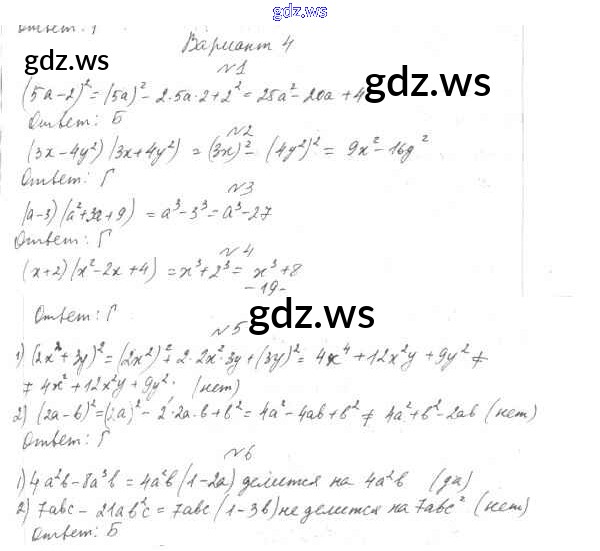 gdz.ws
Ответ: Г
Вариант 4
gdz.ws
№1
(5a-2)² = (5a)² - 2·5a·2 + 2² = 25a² - 20a + 4
gdz.ws
Ответ: Б
№2
(3x-4y²)(3x+4y²) = (3x)² - (4y²)² = 9x² - 16y²
Ответ: Г
№3
(a-3)(a²+3a+9) = a³-3³ = a³-27
Ответ: Г
№4
(x+2)(x²-2x+4) = x³+2³ = x³+8
-19-
Ответ: Г
gdz.ws
№5
1) (2x²+3y)² = (2x²)² + 2·2x²·3y + (3y)² = 4x⁴ + 12x²y + 9y² ≠
≠ 4x² + 12x²y + 9y². (нет)
2) (2a-b)² = (2a)² - 2·2a·b + b² = 4a² - 4ab + b² ≠ 4a² + b² - 2ab (нет)
Ответ: Г
№6
1) 4a²b - 8a³b = 4a²b(1-2a) делится на 4a²b (да)
2) 7abc - 21ab²c = 7abc(1-3b) не делится на 7abc² (нет)
Ответ: Б
gdz.ws